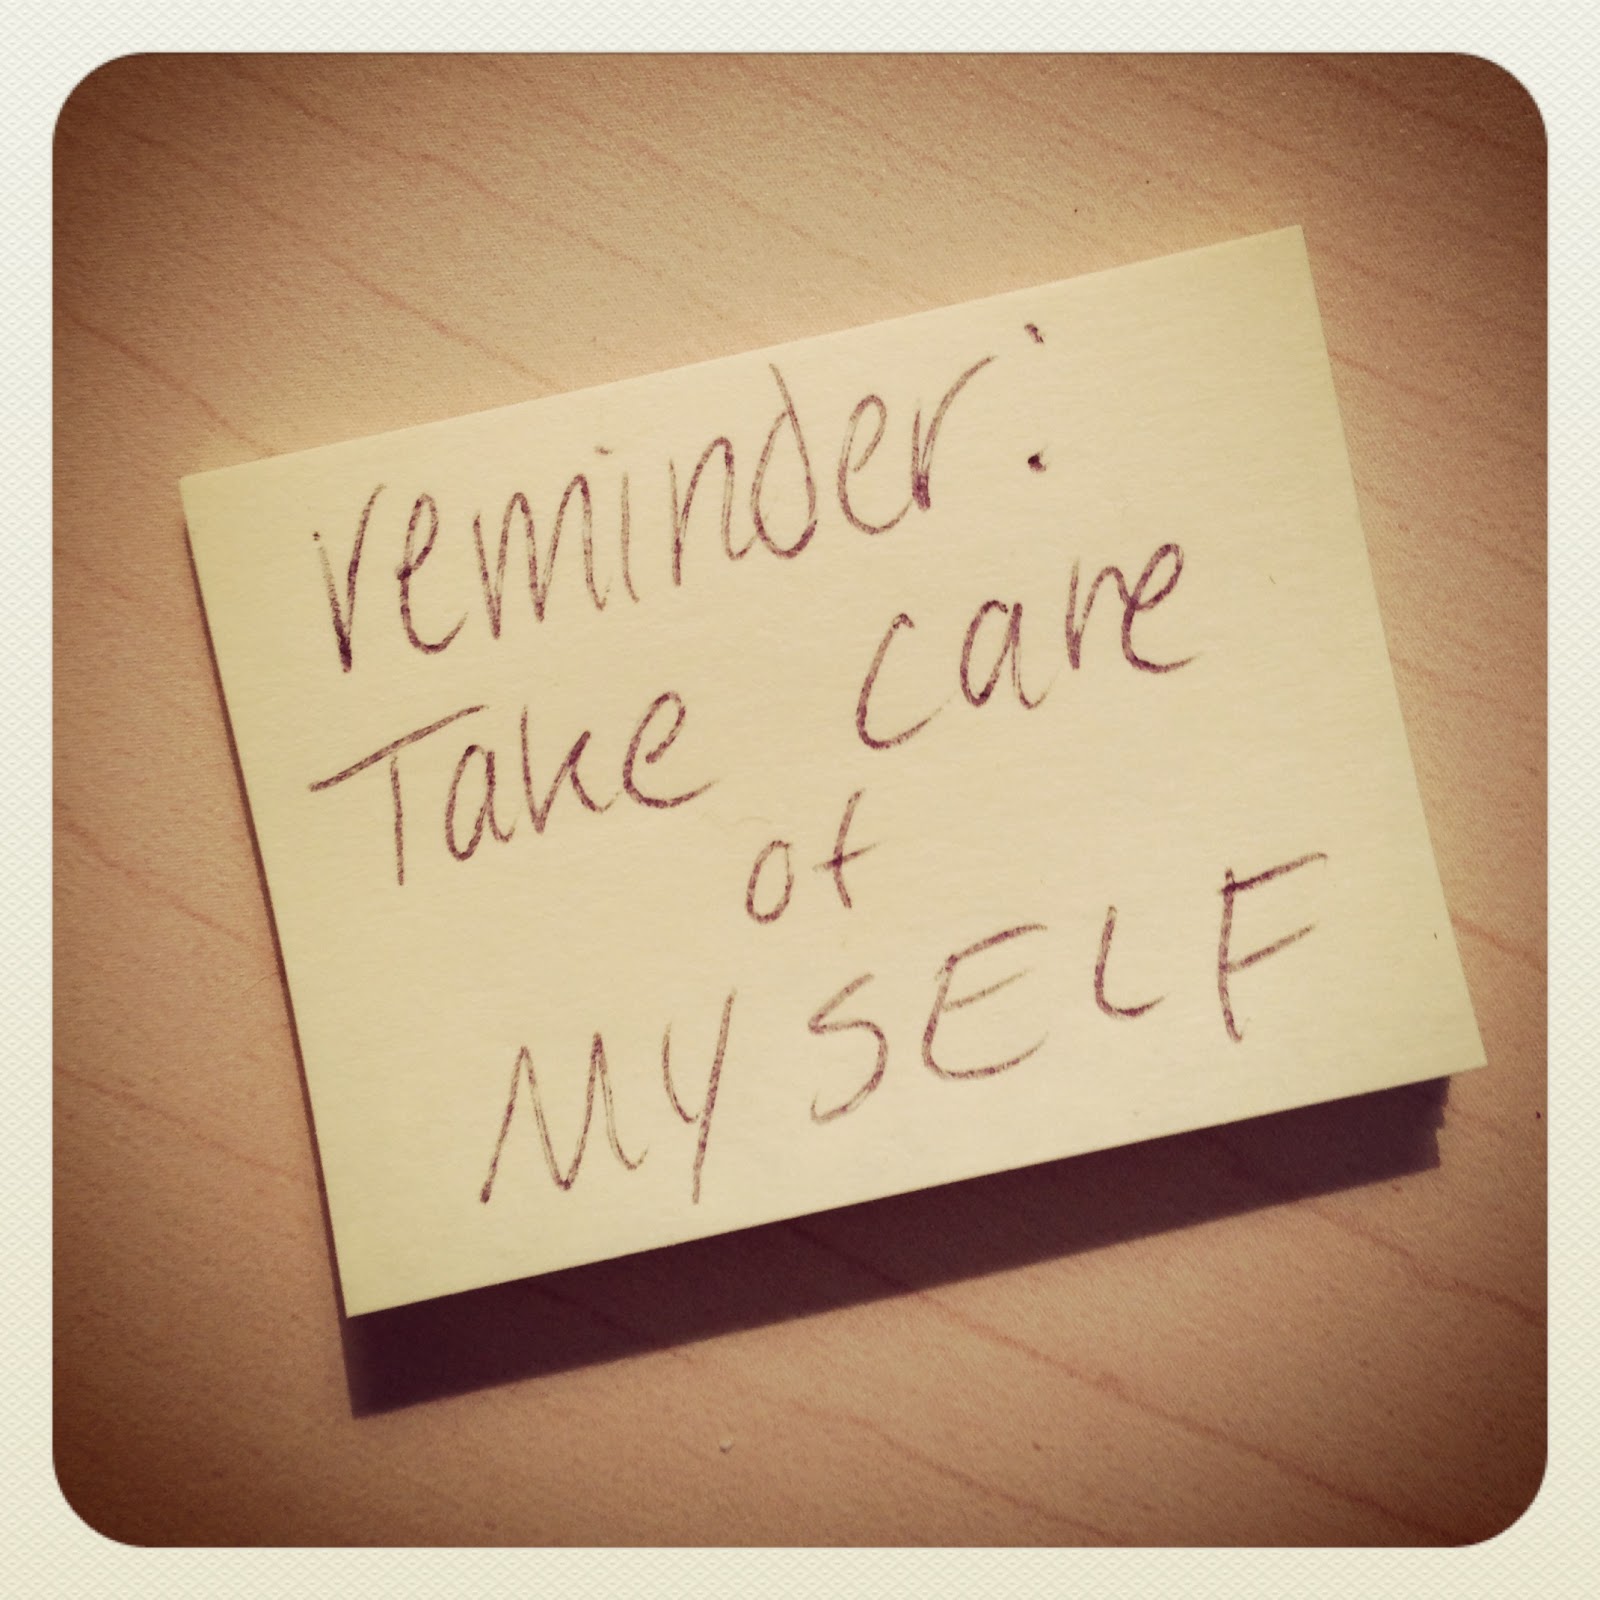 reminder:
Take care
of
MYSELF